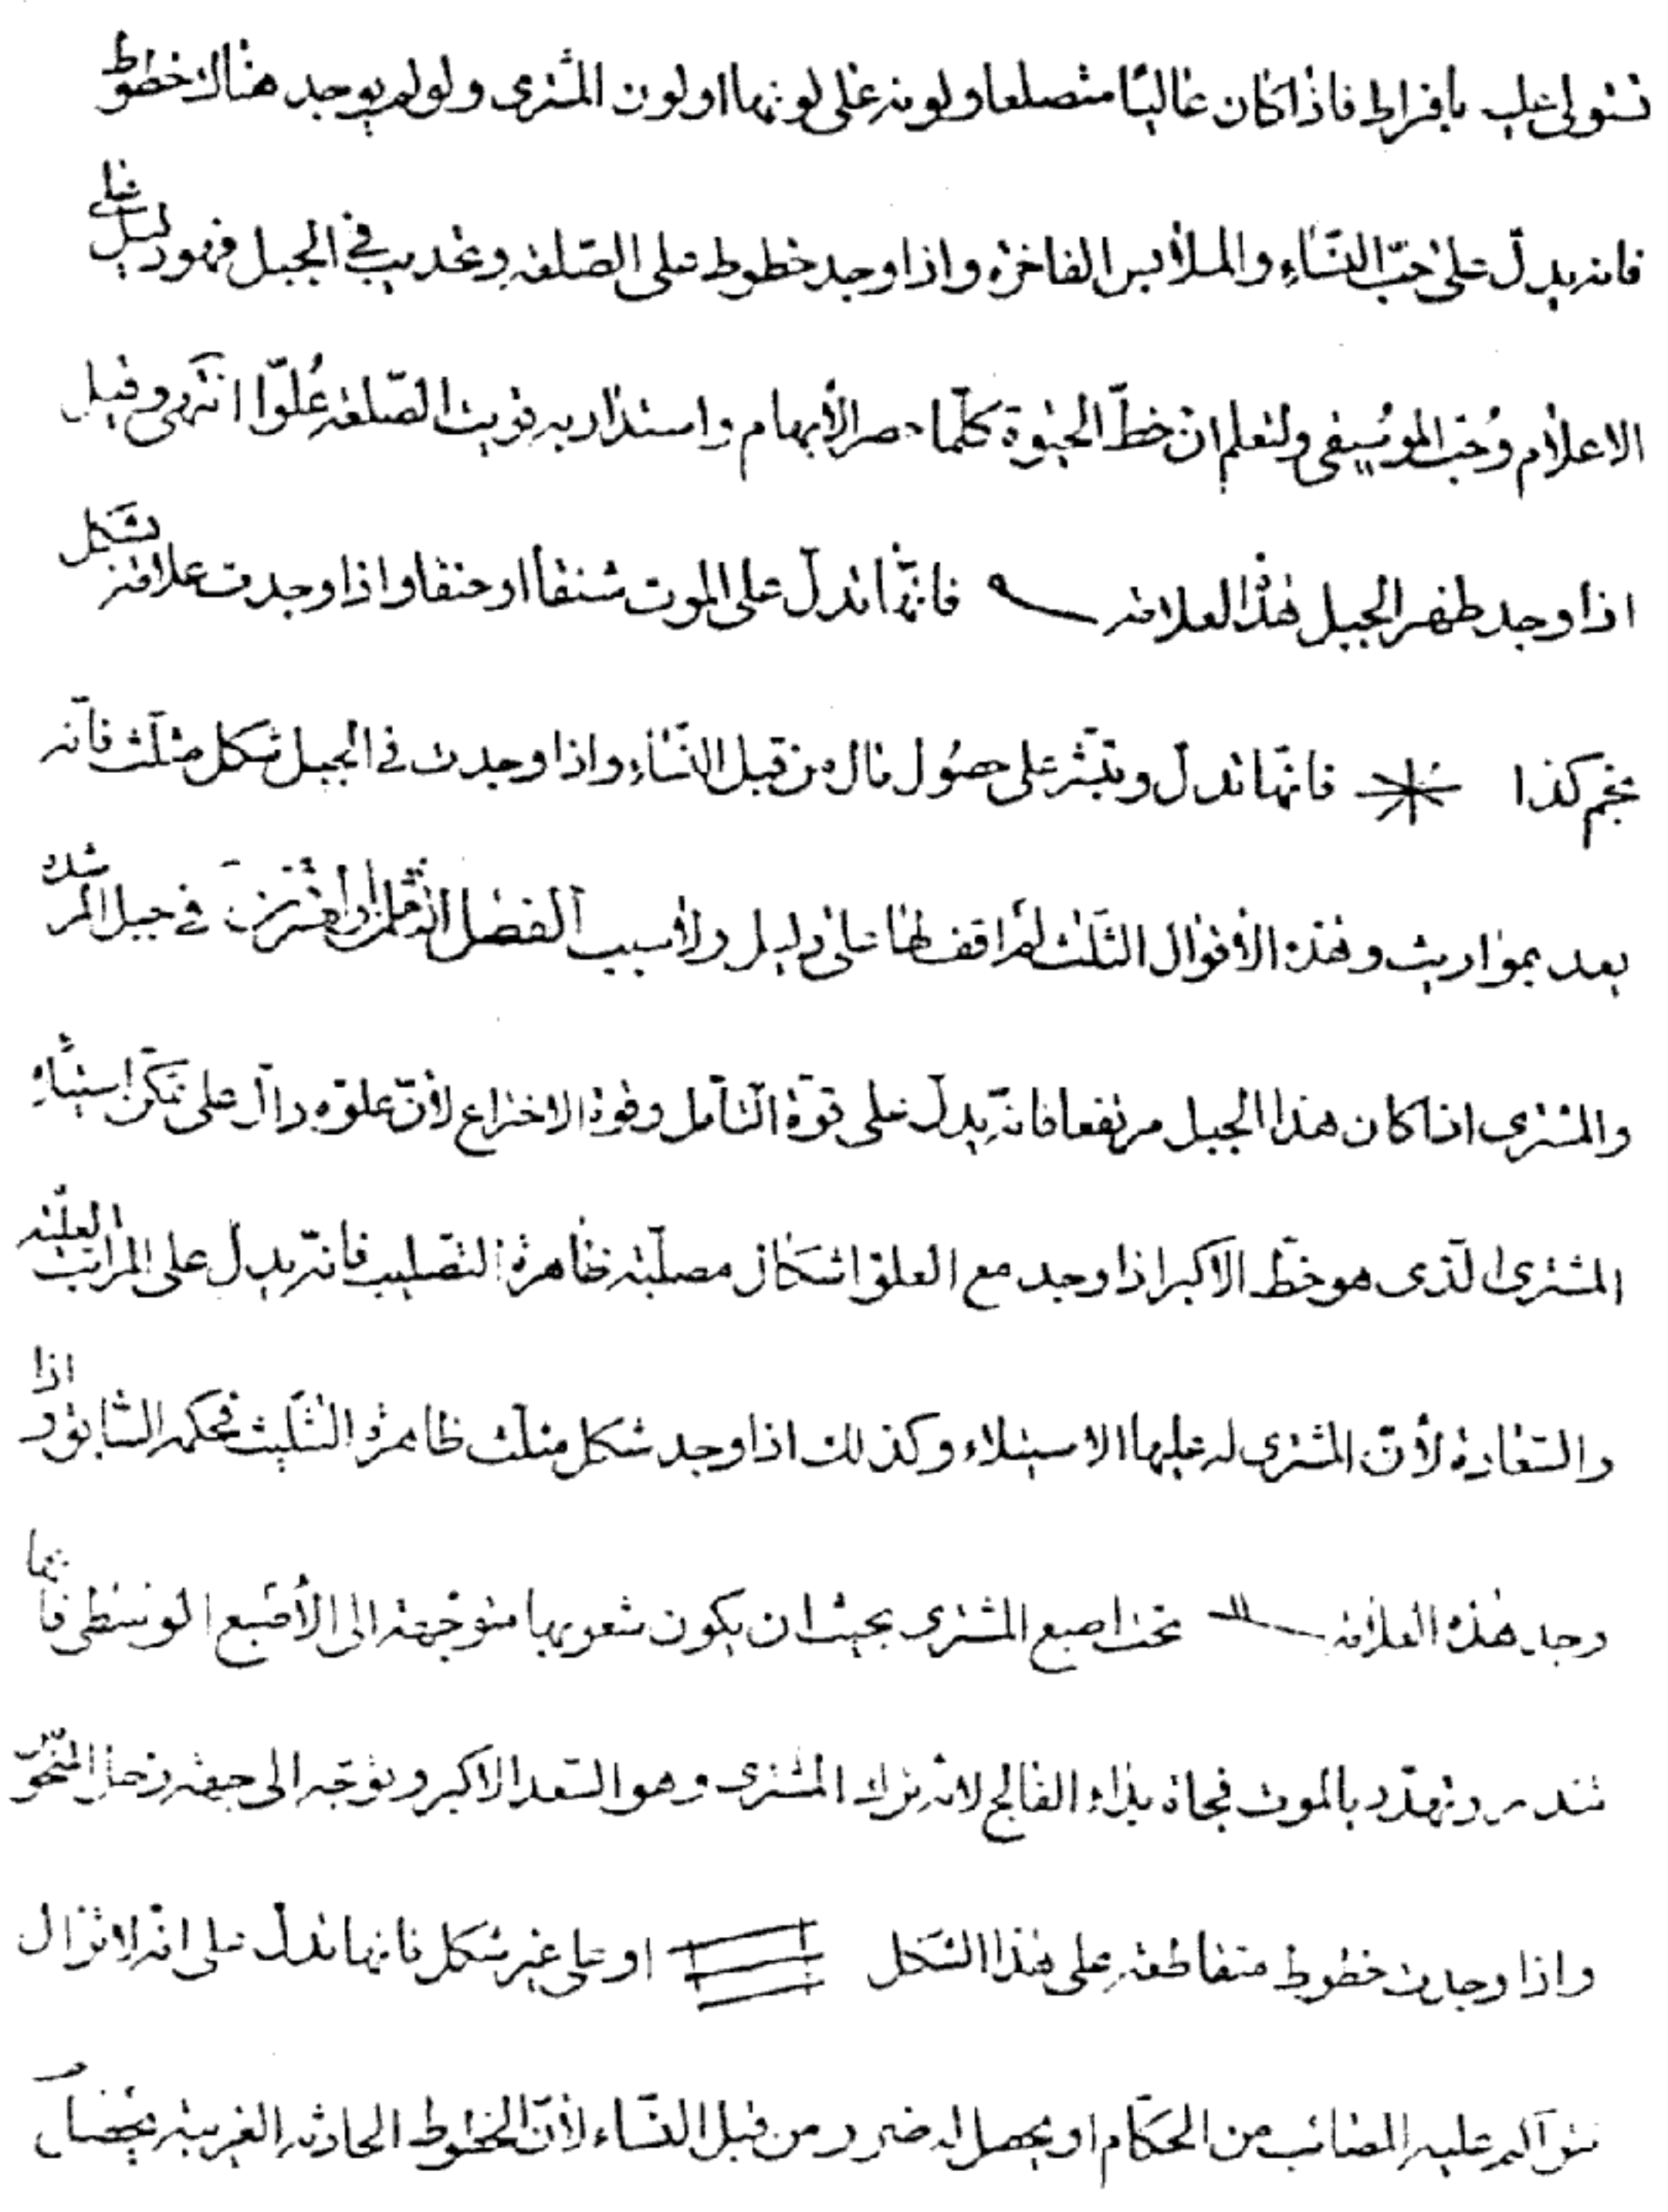 تستولى عليه بافراط فاذا كان عاليًا متصلعا ولونه على لونها او لون المشترى ولو لم يوجد هناك خطوط
فانه يدلّ على حبّ النّساء والملابس الفاخرة واذا وجد خطوط على الصّلعة وتحديب فى الجبل فهو دليل على
الاعلام وحُبّ الموسيقى ولتعلم ان خطّ الحيوة كلّما حصر الأبهام واستدار به قويت الصّلعة عُلوّا انتهى وقيل
اذا وجد ظهر الجبل هذه العلامة فانّها تدلّ على الموت شنقاً او خنقا واذا وجدت علامة بشكل
نجم كذا فانّها تدلّ وتبشّر على حصُول مال من قبل النّساء واذا وجدت فى الجبل شكل مثلّث فانّه
يعد بمواريث وهذه الأقوال الثلث لم اقف لها على دليل ولا سبب الفصل فى جبل المشترى
والمشترى اذا كان هذا الجبل مرتفعا فانّه يدلّ على قوّة التأمّل وقوة الاختراع لأنّ علوّه دالّ على تمكّن استيلاء
المشترى الّذى هو خطّ الاكبر اذا وجد مع العلوّ اشكال مصلّبة ظاهرة التصليب فانّه يدلّ على المراتب العليّة
والسّعادة لأنّ المشترى له عليها الاستيلاء وكذلك اذا وجد شكل مثلّث ظاهرة التثليث فحكمه السّابق واذا
وجد هذه العلامة تحت اصبع المشترى بحيث ان يكون متوجّهة الى الأصبع الوسطى فانّها
تنذر وتهدّد بالموت فجاة بداء الفالج لانّه ترك المشترى وهو السّعد الاكبر وتوجّه الى جهة زحل
واذا وجدت خطوط متقاطعة على هذا الشكل او على غير شكل فانها تدلّ على انّه لا تزال
تتراكم عليه المصائب من الحكّام او يحصل له ضرر من قبل النّساء لأنّ الخطوط الحادثة الغريبة